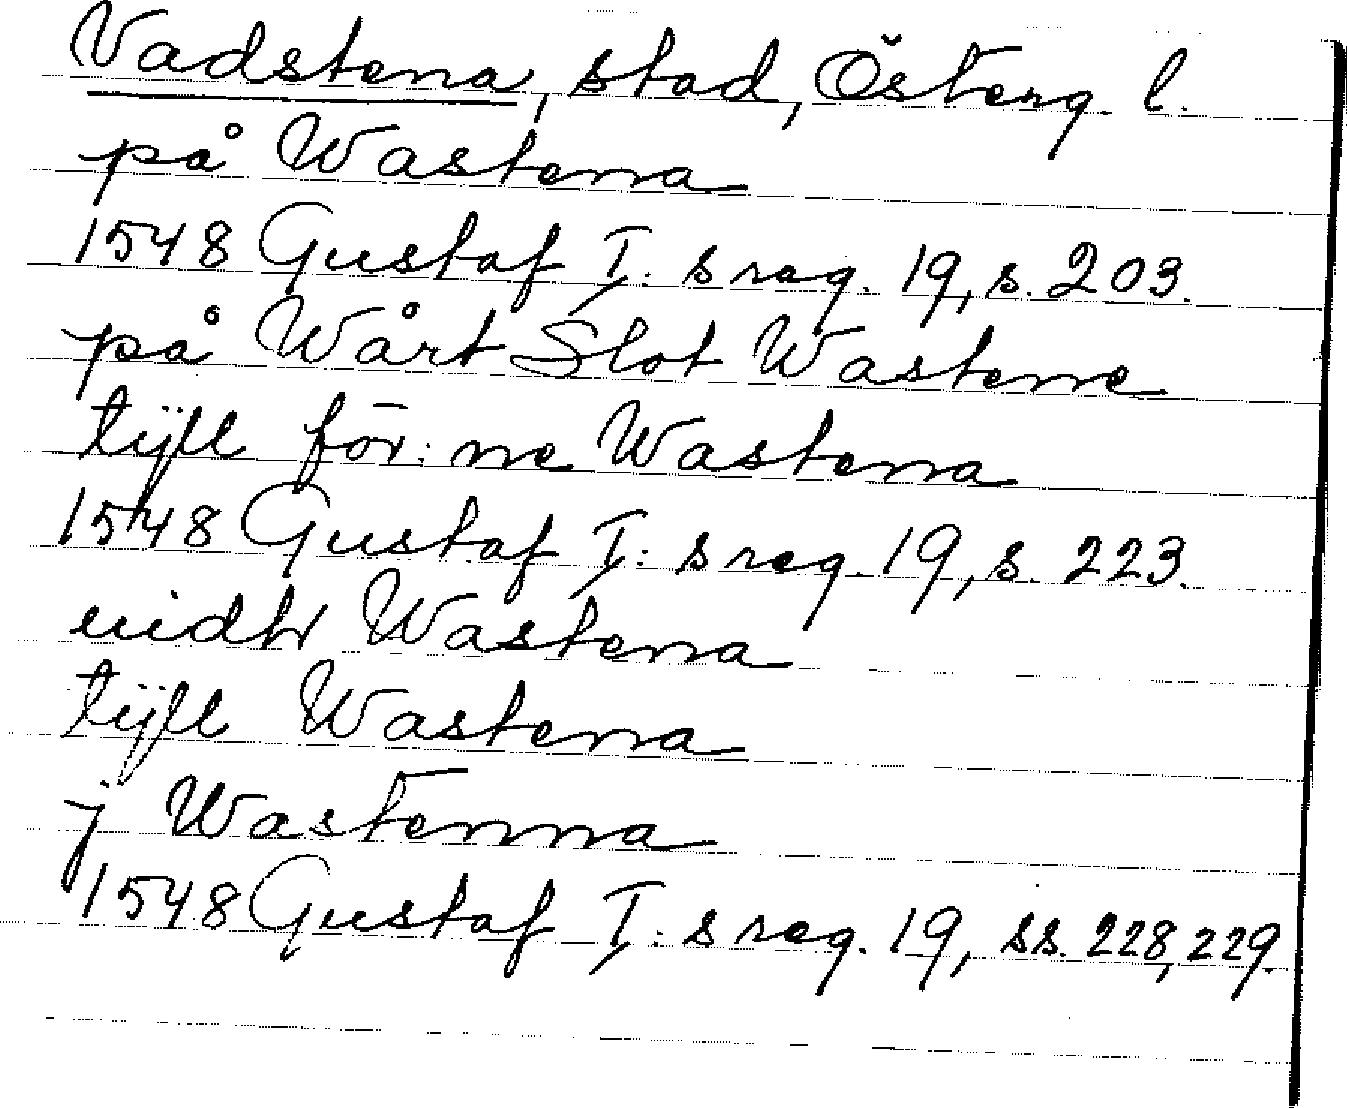 Vadstena, stad, Österg. l.
på Wastena
1548 Gustaf I:s reg. 19, s. 203.
på Wårt Slot Wastene
tijll för:ne Wastena
1548 Gustaf I:s reg. 19, s. 223.
uidh Wastena
tijll Wastena
j Wastenna
1548 Gustaf I:s reg. 19, ss. 228, 229.